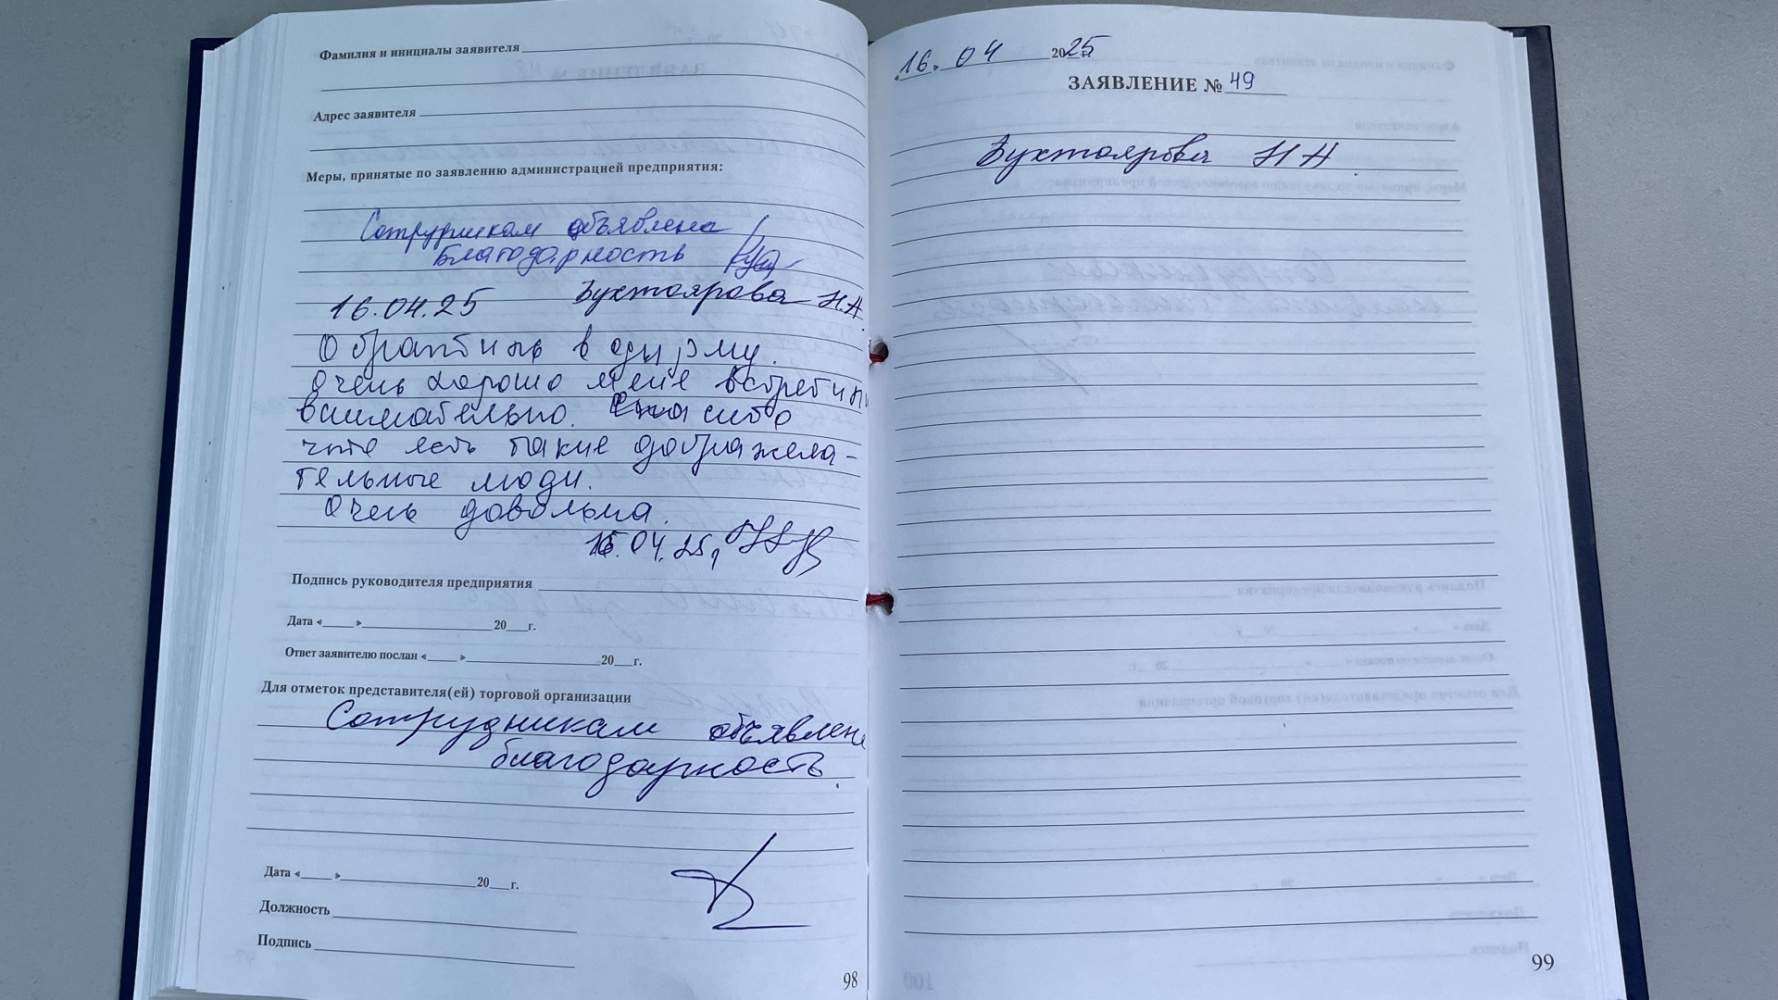 Фамилия и инициалы заявителя
Адрес заявителя
Меры, принятые по заявлению администрацией предприятия:
Сотрудникам объявлена
благодарность
16.04.25 Бухтоярова Н.А.
Обратились в фирму.
Очень хорошо меня встретили
внимательно. Спасибо
что есть такие доброжела-
тельные люди.
Очень довольна.
16.04.25г
Подпись руководителя предприятия
Дата « » 20 г.
Ответ заявителю послан « » 20 г.
Для отметок представителя(ей) торговой организации
Сотрудникам объявлена
благодарность.
Дата « » 20 г.
Должность
Подпись
98
16.04 2025
ЗАЯВЛЕНИЕ № 49
Бухтоярова Н А
99